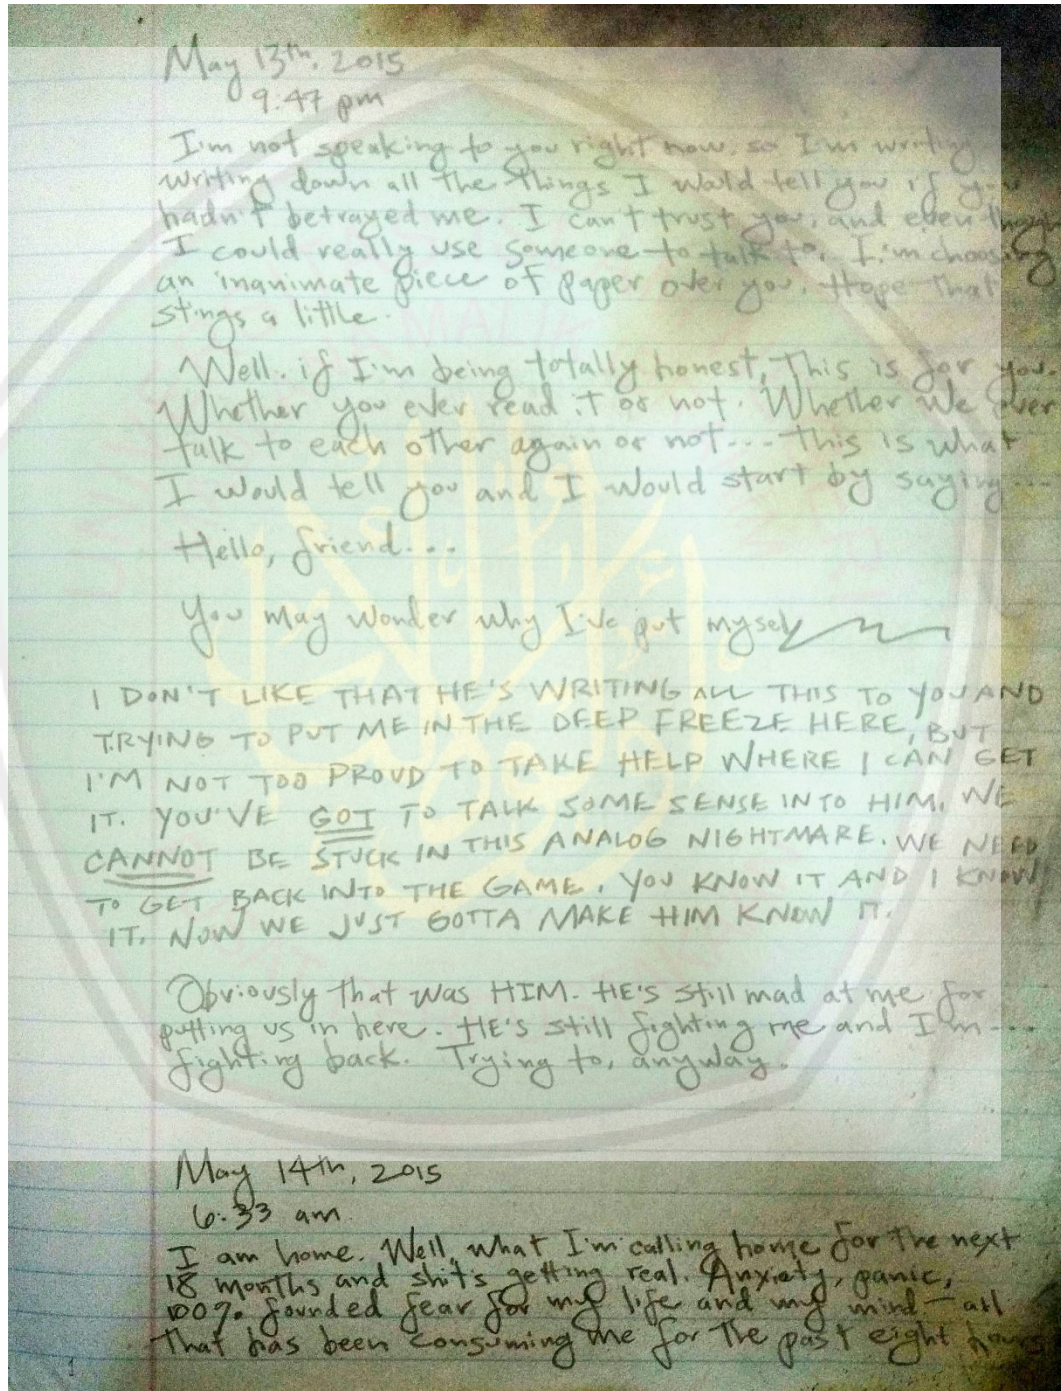 May 13th, 2015
9:47 pm
I'm not speaking to you right now, so I'm writing
writing down all the things I would tell you if you
hadn't betrayed me. I can't trust you, and even though
I could really use someone to talk to, I'm choosing
an inanimate piece of paper over you. Hope that
stings a little.
Well. if I'm being totally honest, This is for you.
Whether you ever read it or not. Whether we ever
talk to each other again or not... this is what
I would tell you and I would start by saying...
Hello, friend...
You may wonder why I've put mysel
I DON'T LIKE THAT HE'S WRITING ALL THIS TO YOU AND
TRYING TO PUT ME IN THE DEEP FREEZE HERE, BUT
I'M NOT TOO PROUD TO TAKE HELP WHERE I CAN GET
IT. YOU'VE GOT TO TALK SOME SENSE INTO HIM. WE
CANNOT BE STUCK IN THIS ANALOG NIGHTMARE. WE NEED
TO GET BACK INTO THE GAME. YOU KNOW IT AND I KNOW
IT. NOW WE JUST GOTTA MAKE HIM KNOW IT.
Obviously that was HIM. HE'S still mad at me for
putting us in here. HE'S still fighting me and I'm...
fighting back. Trying to, anyway.
May 14th, 2015
6:33 am
I am home. Well, what I'm calling home for the next
18 months and shit's getting real. Anxiety, panic,
100% founded fear for my life and my mind - all
that has been consuming me for the past eight hours
1